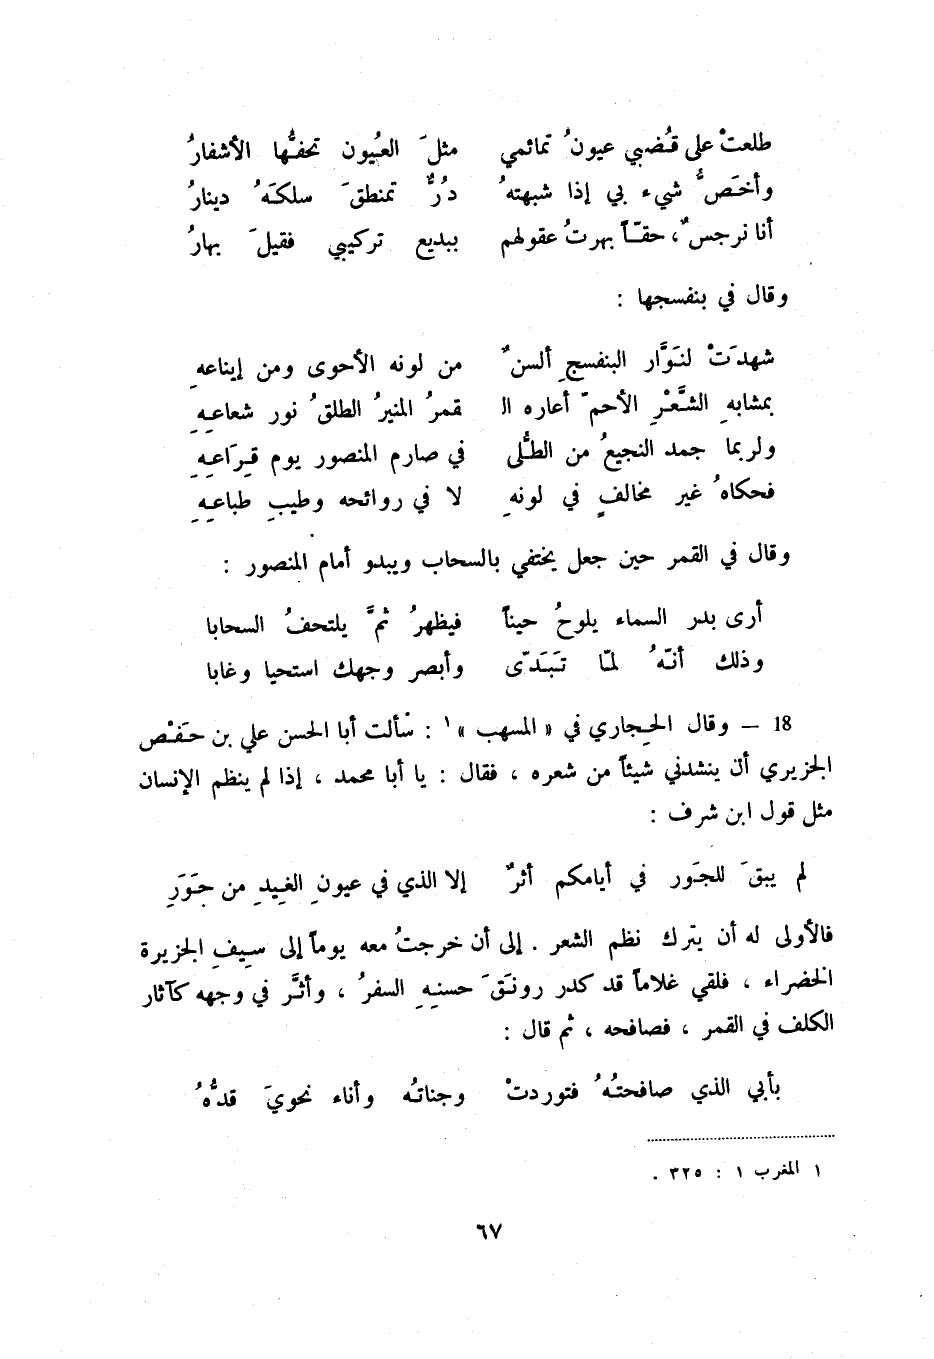 طلعتْ على قُضبي عيونُ تمائمي مثلَ العُيون تحفُّها الأشفارُ
وأخَصُّ شيء بي إذا شبهتهُ دُرٌّ تمنطقَ سلكَهُ دينارُ
أنا نرجسٌ، حقّاً بهرتُ عقولهم ببديع تركيبي فقيلَ بهارُ
وقال في بنفسجها :
شهدَتْ لنَوَّار البنفسجِ ألسنٌ من لونه الأحوى ومن إيناعهِ
بمشابهِ الشَّعْرِ الأحمّ أعاره ال قمرُ المنيرُ الطلقُ نور شعاعِهِ
ولربما جمد النجيعُ من الطُّلى في صارم المنصور يوم قِرَاعِهِ
فحكاهُ غير مخالفٍ في لونهِ لا في روائحه وطيبِ طباعِهِ
وقال في القمر حين جعل يختفي بالسحاب ويبدو أمام المنصور :
أرى بدر السماء يلوحُ حيناً فيظهرُ ثمَّ يلتحفُ السحابا
وذلك أنّهُ لمّا تَبَدّى وأبصر وجهك استحيا وغابا
18 – وقال الحِجاري في « المسهب »١ : سْألت أبا الحسن علي بن حَفْص
الجزيري أن ينشدني شيئاً من شعره ، فقال : يا أبا محمد ، إذا لم ينظم الإنسان
مثل قول ابن شرف :
لم يبقَ للجَور في أيامكم أثرٌ إلا الذي في عيونِ الغِيدِ من حَوَرِ
فالأولى له أن يترك نظم الشعر . إلى أن خرجتُ معه يوماً إلى سِيفِ الجزيرة
الخضراء ، فلقي غلاماً قد كدر رونَقَ حسنِهِ السفرُ ، وأثَّر في وجهه كآثار
الكلف في القمر ، فصافحه ، ثم قال :
بأبي الذي صافحتُهُ فتوردتْ وجناتُه وأناء نحويَ قدُّهُ
١ المغرب ١ : ٣٢٥ .
٦٧